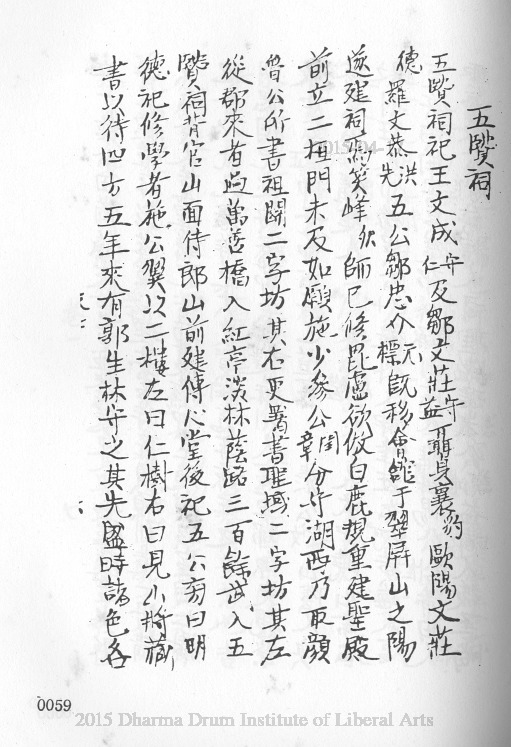 五賢祠
五賢祠祀王文成守仁及鄒文莊守益聶貞襄豹歐陽文莊
德羅文恭洪先五公鄒忠介元標既移會館于翠屏山之陽
遂建祠焉笑峰然師已修毘盧欲倣白鹿規重建聖殿
前立二桓門未及如願施少參公閏章分守湖西乃取顏
魯公所書祖關二字坊其右更署書聖域二字坊其左
從郡來者過萬善橋入紅亭淡林蔭路三百餘武入五
賢祠背官山面侍郎山前建傳心堂後祀五公旁曰明
德祀修學者施公翼以二樓左曰仁樹右曰見山將藏
書以待四方五年來有郭生林守之其先盛時諸色各
0059
2015 Dharma Drum Institute of Liberal Arts